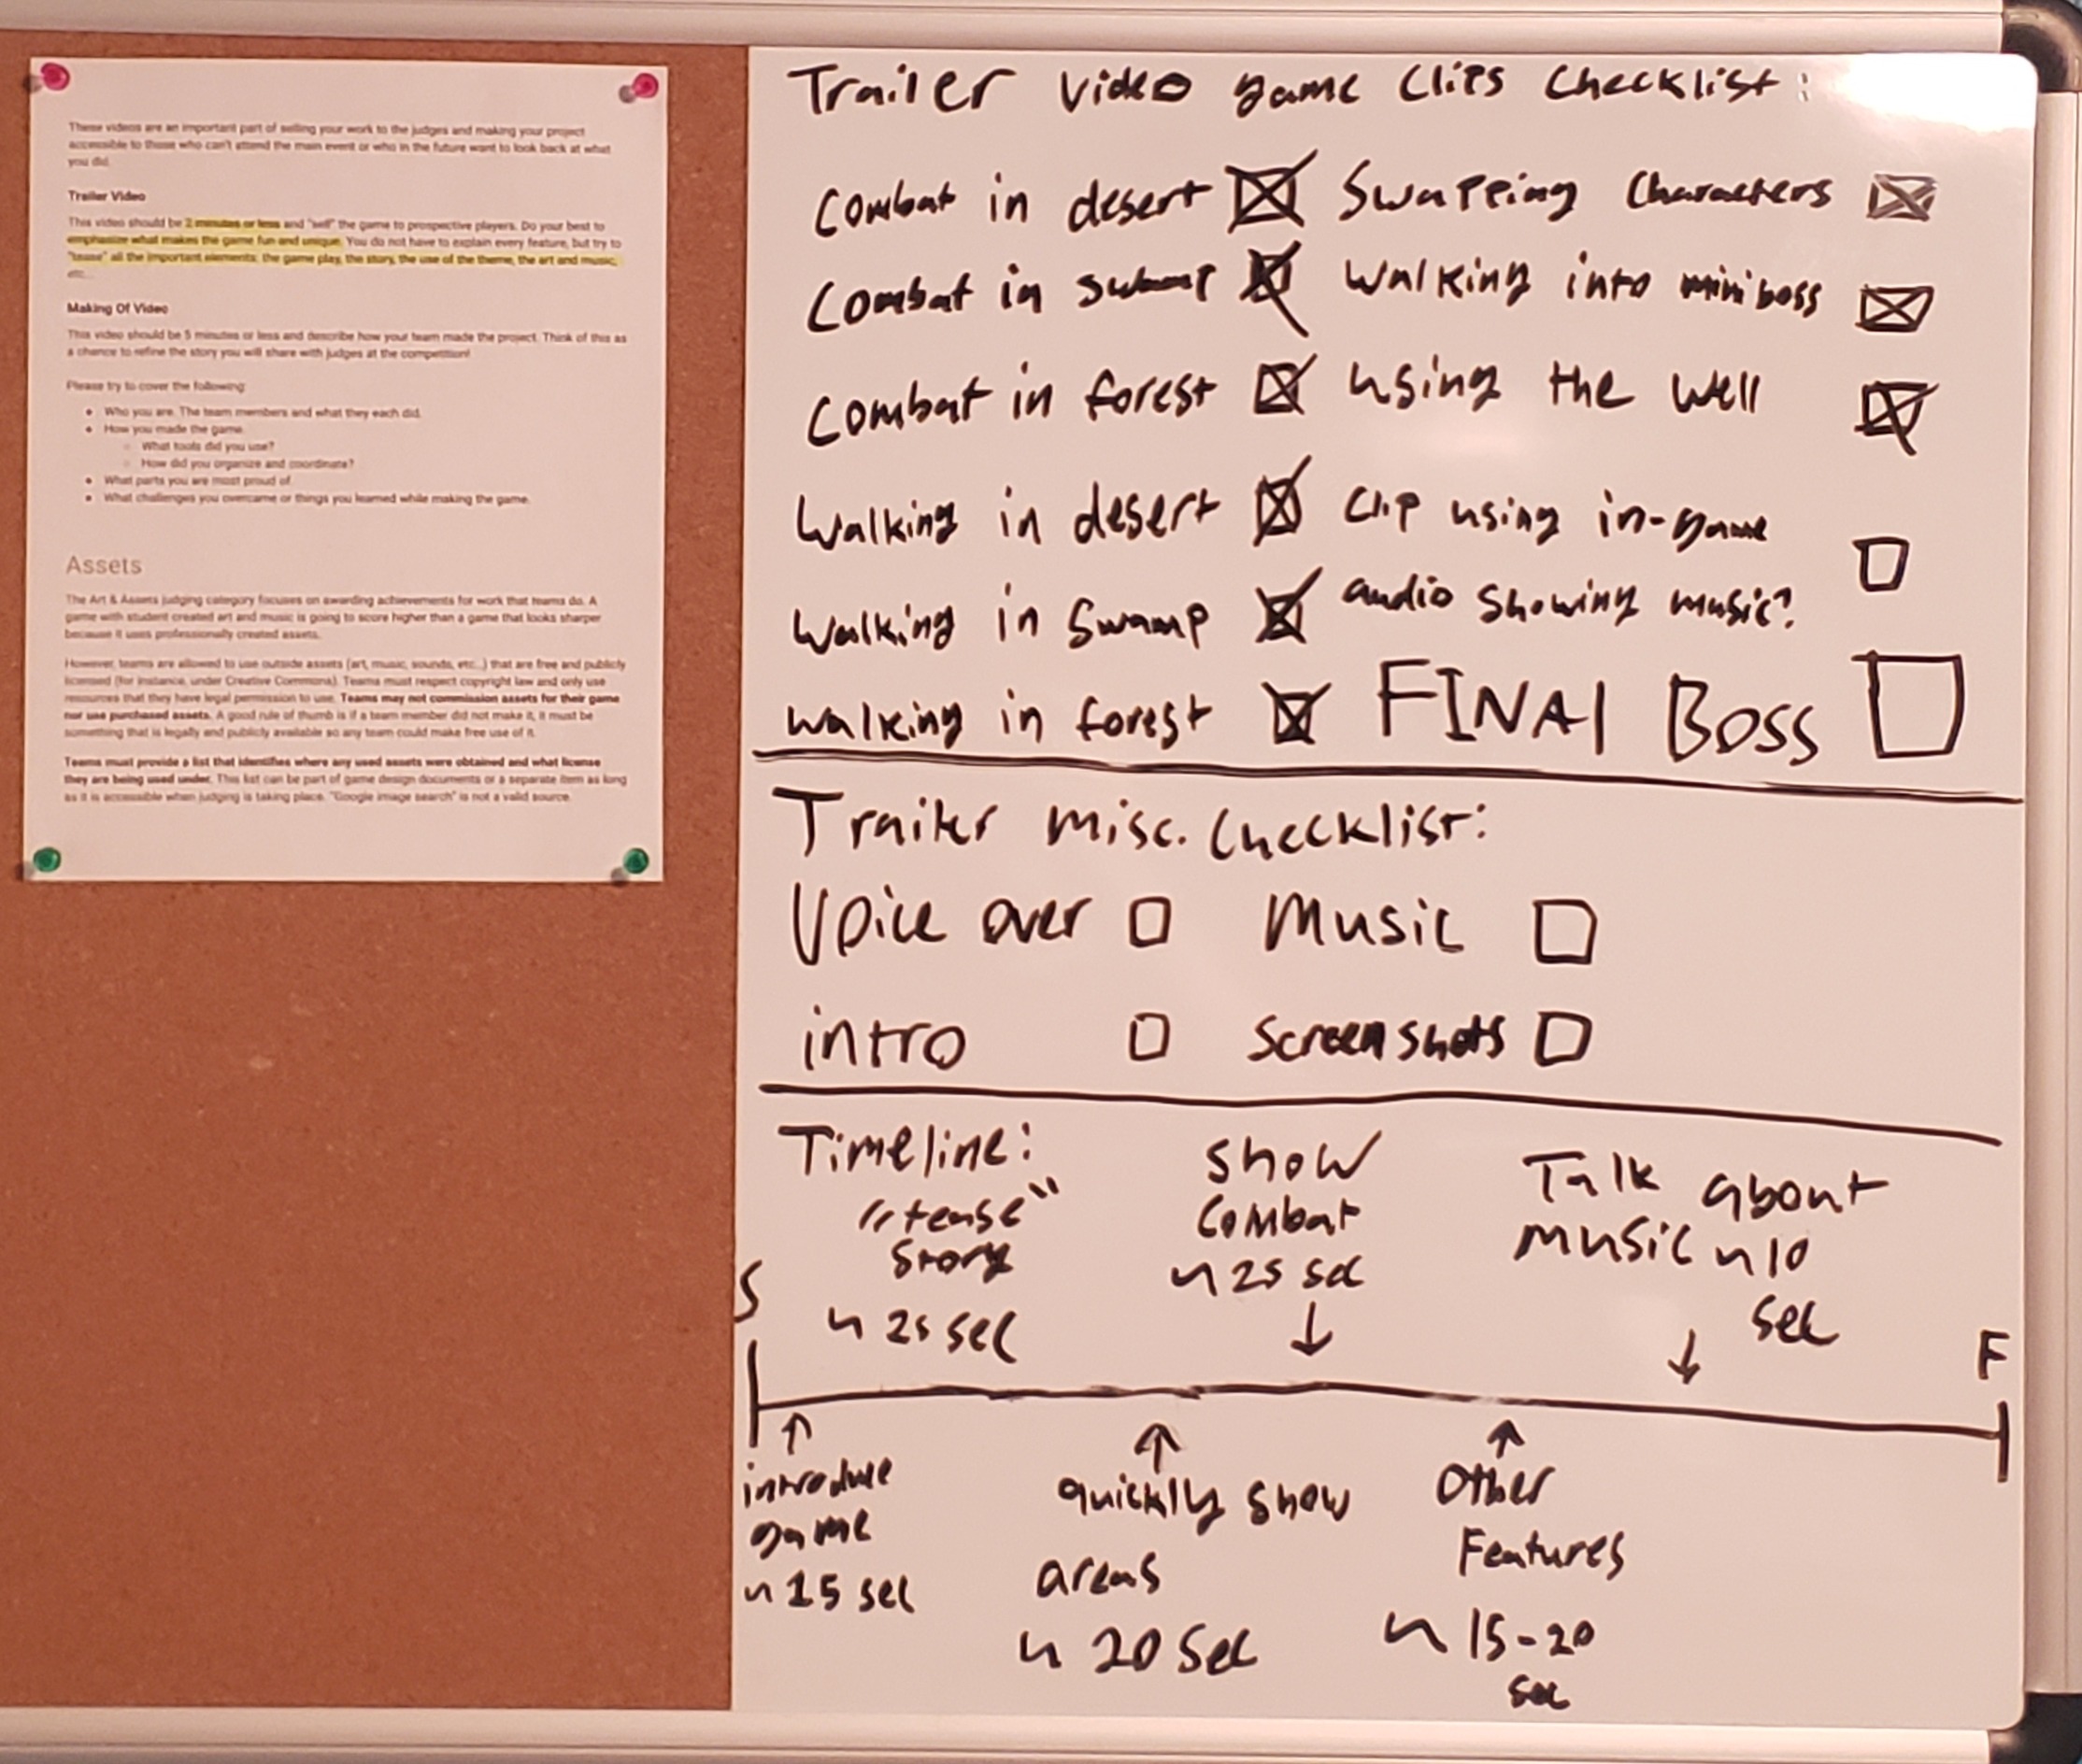 These videos are an important part of selling your work to the judges and making your project
accessible to those who can't attend the main event or who in the future want to look back at what
you did.
Trailer Video
This video should be 2 minutes or less and "sell" the game to prospective players. Do your best to
emphasize what makes the game fun and unique. You do not have to explain every feature, but try to
"tease" all the important elements: the game play, the story, the use of the theme, the art and music,
etc...
Making Of Video
This video should be 5 minutes or less and describe how your team made the project. Think of this as
a chance to refine the story you will share with judges at the competition!
Please try to cover the following:
• Who you are. The team members and what they each did.
• How you made the game.
○ What tools did you use?
○ How did you organize and coordinate?
• What parts you are most proud of.
• What challenges you overcame or things you learned while making the game.
Assets
The Art & Assets judging category focuses on awarding achievements for work that teams do. A
game with student created art and music is going to score higher than a game that looks sharper
because it uses professionally created assets.
However, teams are allowed to use outside assets (art, music, sounds, etc...) that are free and publicly
licensed (for instance, under Creative Commons). Teams must respect copyright law and only use
resources that they have legal permission to use. Teams may not commission assets for their game
nor use purchased assets. A good rule of thumb is if a team member did not make it, it must be
something that is legally and publicly available so any team could make free use of it.
Teams must provide a list that identifies where any used assets were obtained and what license
they are being used under. This list can be part of game design documents or a separate item as long
as it is accessible when judging is taking place. "Google image search" is not a valid source.
Trailer video game clips checklist:
Combat in desert ☒ Swapping characters ☒
Combat in swamp ☒ walking into miniboss ☒
Combat in forest ☒ using the well ☒
Walking in desert ☒ Clip using in-game
Walking in swamp ☒ audio showing music? ☐
walking in forest ☒ FINAl BOSS ☐
Trailer misc. checklist:
Voice over ☐ Music ☐
intro ☐ screenshots ☐
Timeline:
"tease"
story
~ 25 sec
Show
Combat
~ 25 sec
↓
Talk about
music ~10
sec
↓
S
F
↑
introduce
game
~ 15 sec
↑
quickly show
areas
~ 20 sec
↑
Other
Features
~ 15-20
sec